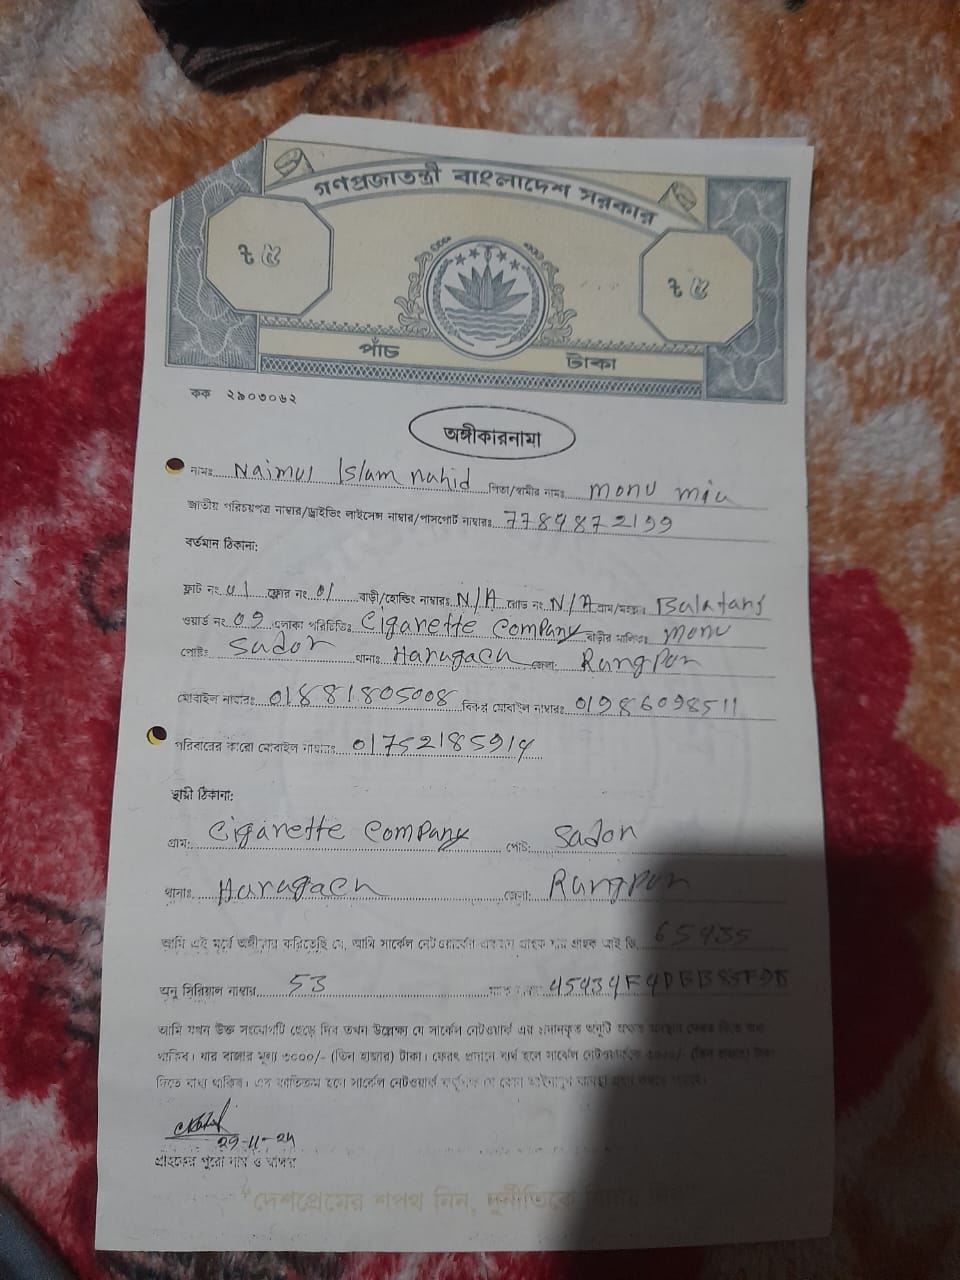 গণপ্রজাতন্ত্রী বাংলাদেশ সরকার
৳ ৫ ৳ ৫
পাঁচ টাকা
কক ২৯০৩০৬২
অঙ্গীকারনামা
নামঃ Naimul Islam nahid পিতা/স্বামীর নামঃ monu mia
জাতীয় পরিচয়পত্র নাম্বার/ড্রাইভিং লাইসেন্স নাম্বার/পাসপোর্ট নাম্বারঃ
বর্তমান ঠিকানা:
ফ্লাট নং 01 ফ্লোর নং 01 বাড়ী/হোল্ডিং নাম্বারঃ N/A রোড নং N/A গ্রাম/মহল্লা
ওয়ার্ড নং 09 এলাকা পরিচিতিঃ Cigarette Company বাড়ীর মালিকঃ monu
পোষ্টঃ Sador থানাঃ Haragach জেলা: Rangpur
মোবাইল নাম্বারঃ 01881805008 বিকল্প মোবাইল নাম্বারঃ 01986098511
পরিবারের কারো মোবাইল নাম্বারঃ 01752185914
স্থায়ী ঠিকানা:
গ্রাম: Cigarette Company পোষ্ট: Sador
থানাঃ Haragach জেলা: Rangpur
আমি এই মর্মে অঙ্গীকার করিতেছি যে, আমি সার্কেল নেটওয়ার্কের একজন গ্রাহক যার গ্রাহক আই ডি
অনু সিরিয়াল নাম্বার 53
আমি যখন উক্ত সংযোগটি ছেড়ে দিব তখন উল্লেখ্য যে সার্কেল নেটওয়ার্ক এর
থাকিব। যার বাজার মূল্য ৩০০০/- (তিন হাজার) টাকা। ফেরৎ প্রদানে ব্যর্থ হলে সার্কেল নেটওয়ার্ককে ৩০০০/- (তিন হাজার) টাকা
দিতে বাধ্য থাকিব। এর ব্যতিক্রম হলে সার্কেল নেটওয়ার্ক কর্তৃপক্ষ যে কোন আইনানুগ ব্যবস্থা
29-11-24
গ্রাহকের পুরো নাম ও স্বাক্ষর
"দেশপ্রেমের শপথ নিন, দুর্নীতিকে বিদায় দিন"